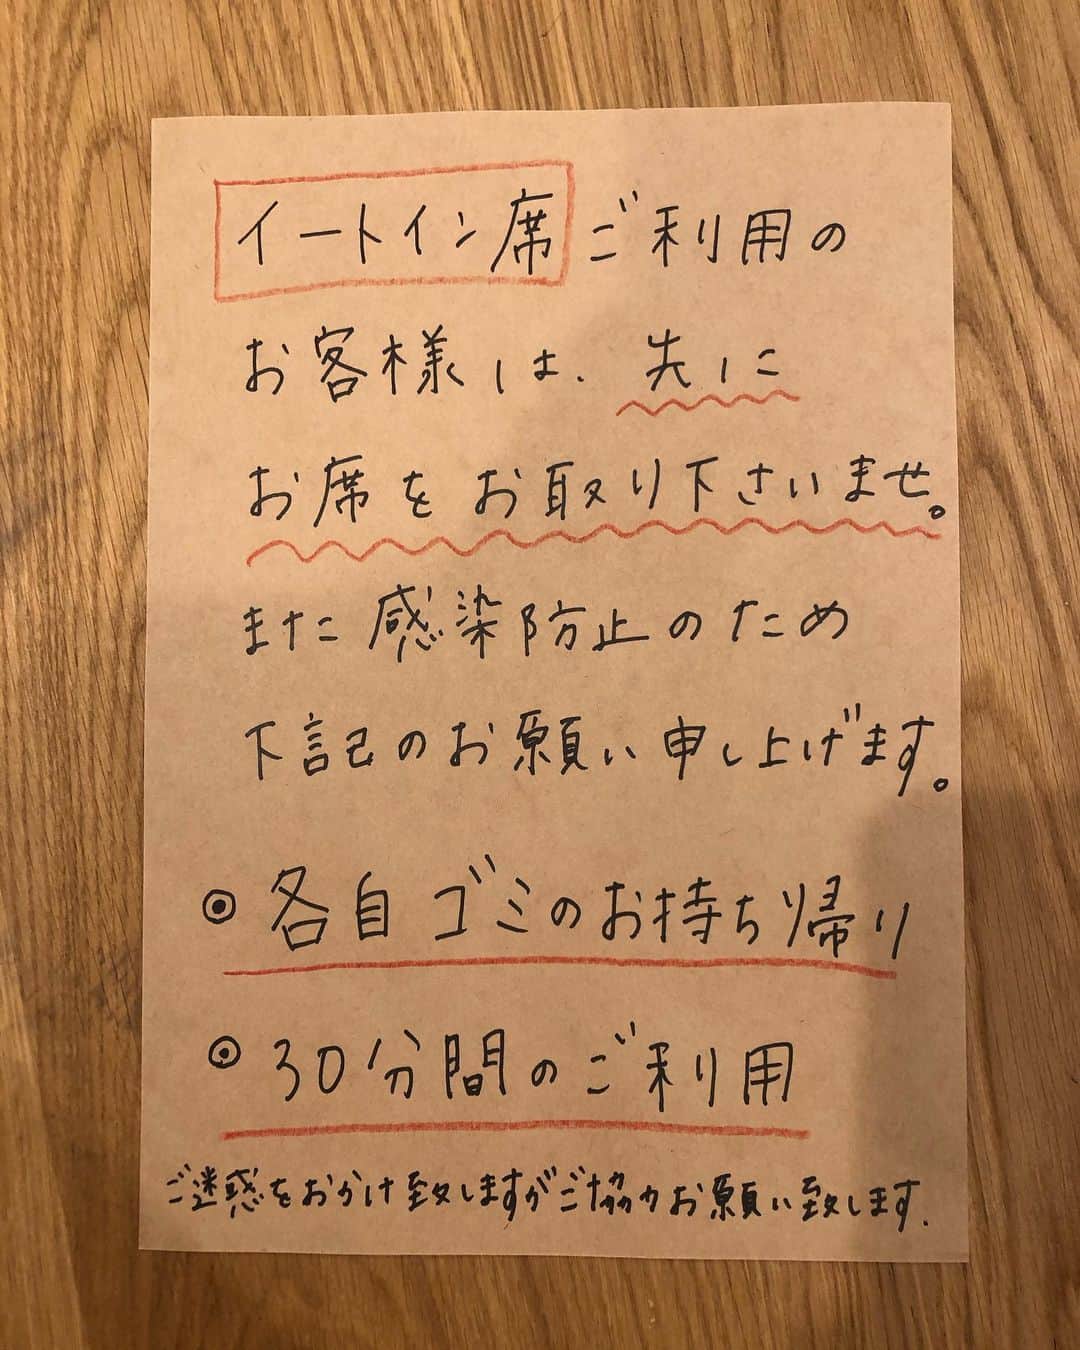 イートイン席ご利用の
お客様は、先に
お席をお取り下さいませ。
また感染防止のため
下記のお願い申し上げます。
◎各自ゴミのお持ち帰り
◎30分間のご利用
ご迷惑をおかけ致しますがご協力お願い致します.